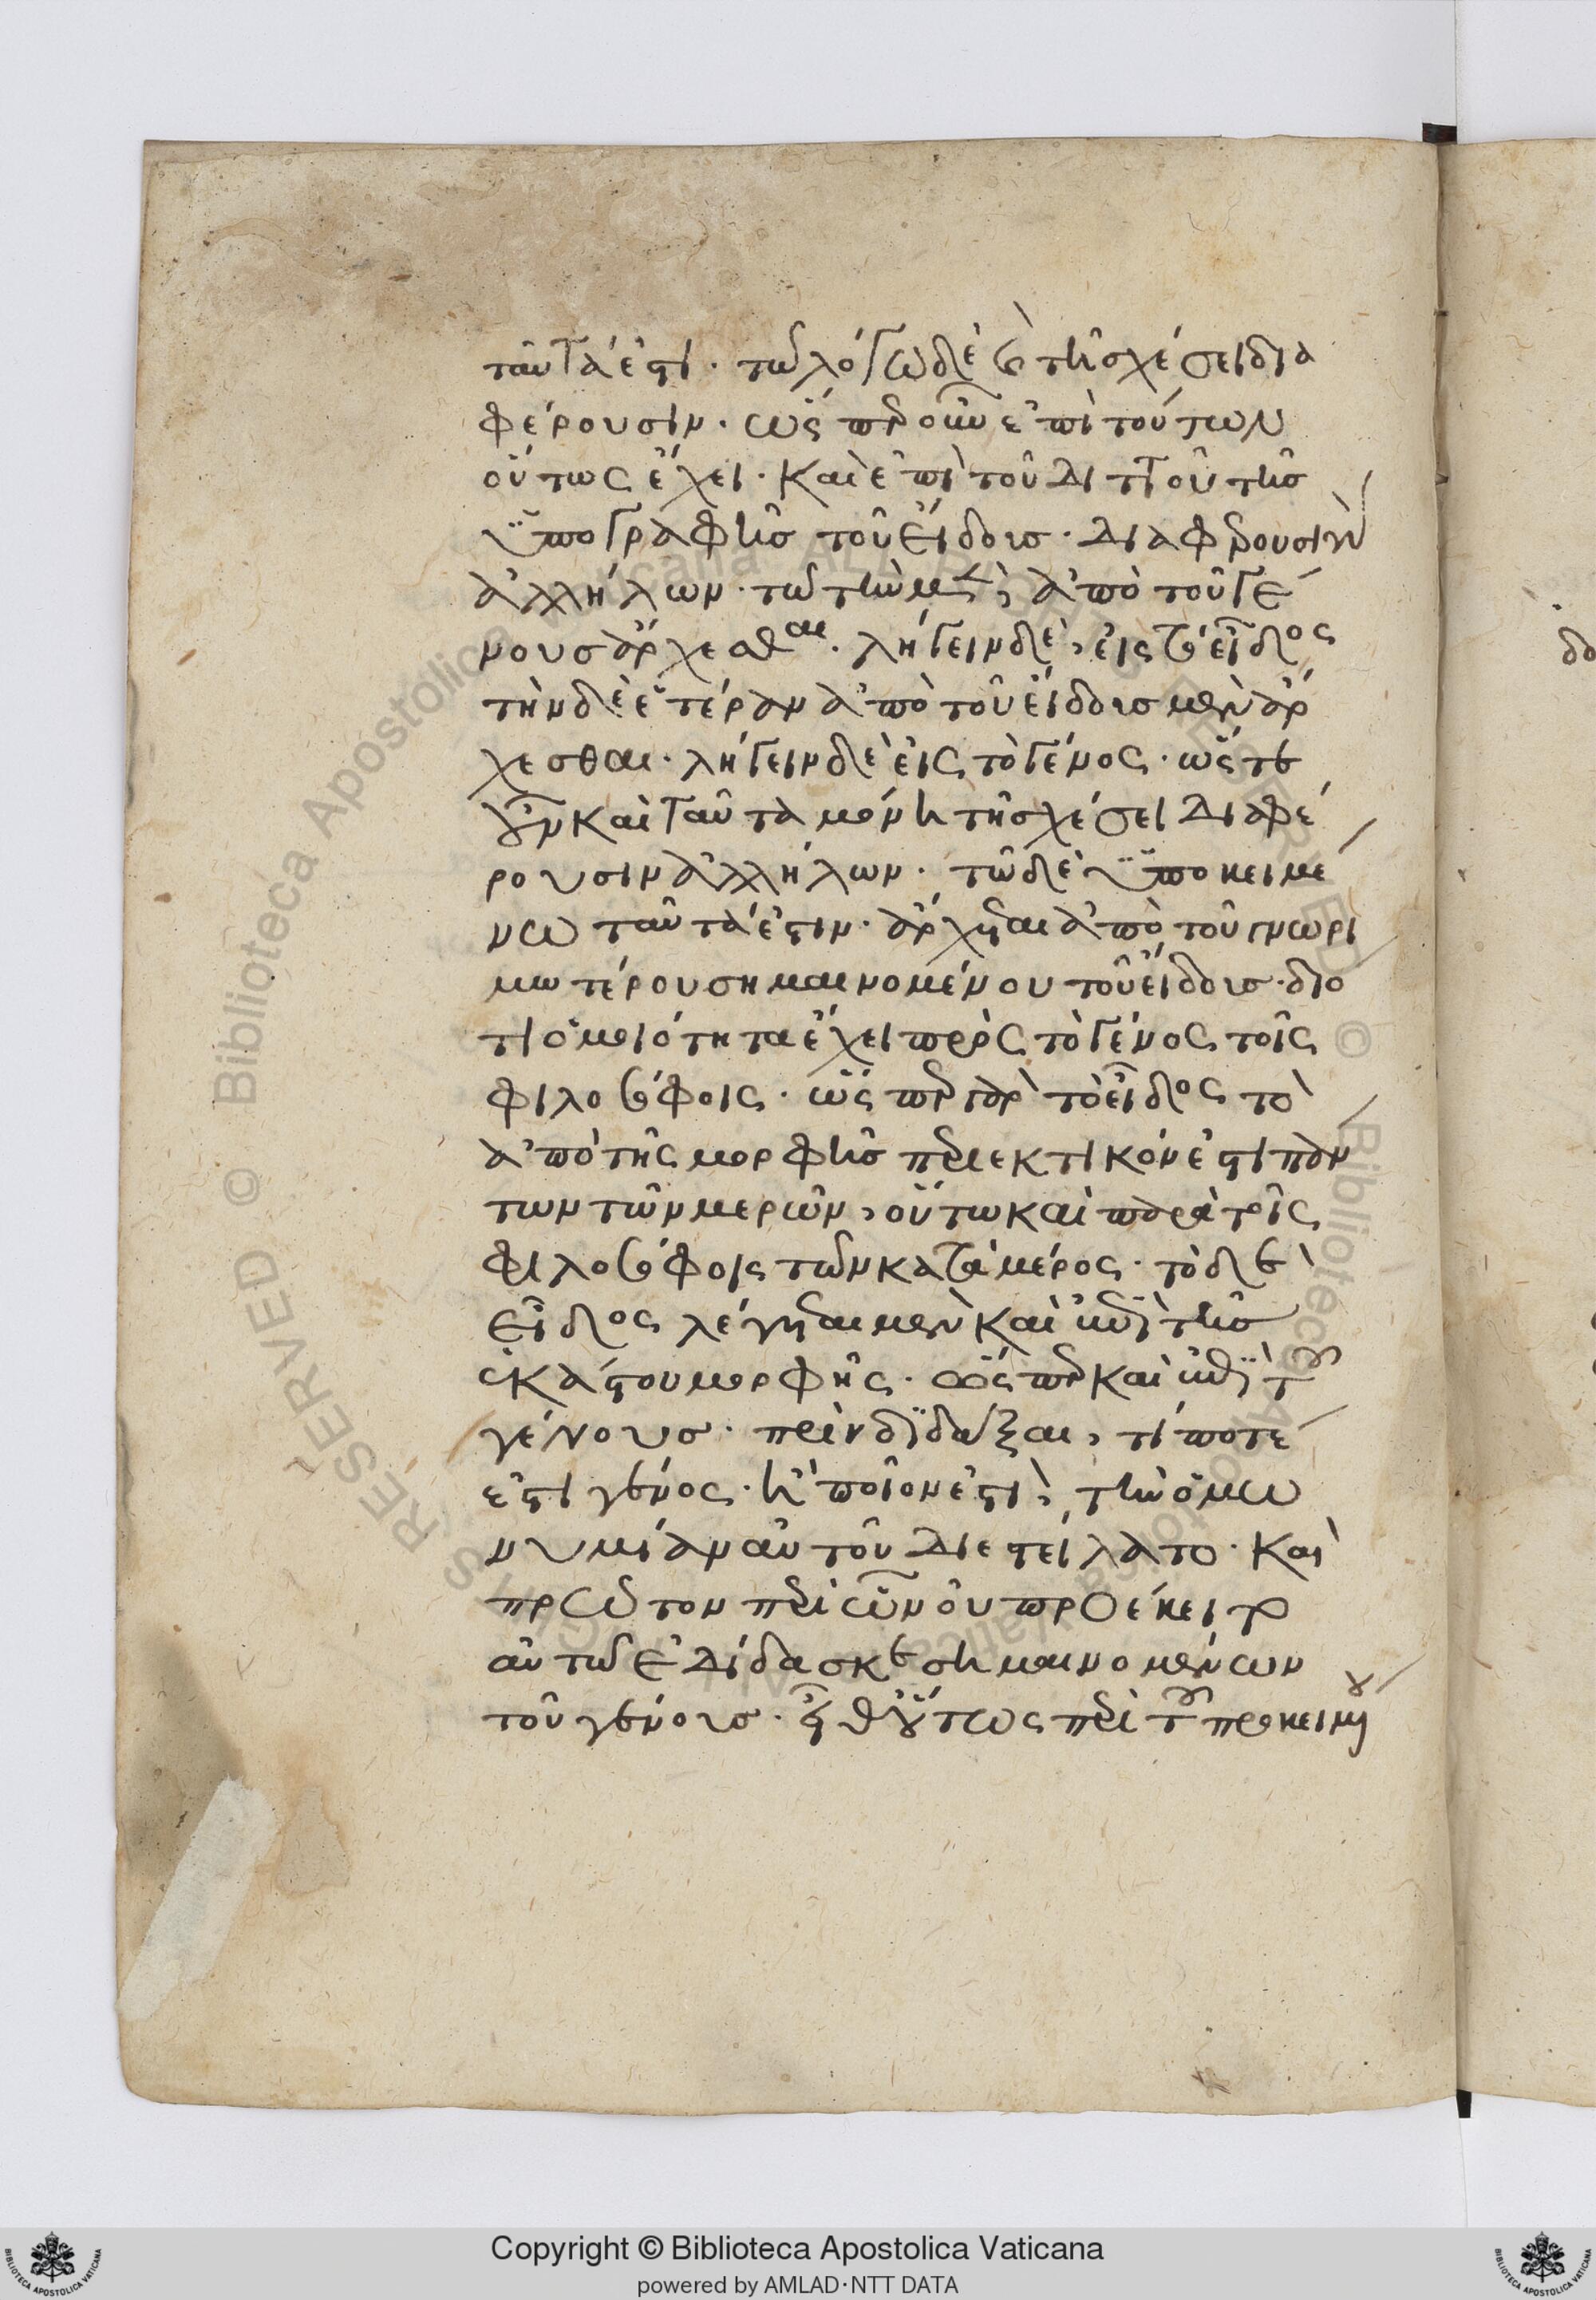 ταῦτά ἐστι· τῶ λόγω δὲ καὶ τῆ σχέσει δια
φέρουσιν· ὥσπερ οὖν ἐπὶ τούτων
οὕτως ἔχει· καὶ ἐπὶ τοῦ διττοῦ τῆς
ὑπογραφῆς τοῦ εἴδους· διαφέρουσιν
ἀλλήλων· τῶ τὴν μὲν, ἀπὸ τοῦ γέ
νους ἄρχεσθαι· λήγειν δὲ, εἰς τὸ εἶδος
τὴν δὲ ἑτέραν ἀπὸ τοῦ εἴδους μὲν ἄρ
χεσθαι· λήγειν δὲ εἰς τὸ γένος· ὥστε
οὖν καὶ ταῦτα μόνη τῆ σχέσει διαφέ
ρουσιν ἀλλήλων· τῶ δὲ ὑποκειμέ
νω ταῦτά ἐστιν· ἄρχεται ἀπὸ τοῦ γνωρι
μωτέρου σημαινομένου τοῦ εἴδους· διό
τι ὁμοιότητα ἔχει πρὸς τὸ γένος τοῖς
φιλοσόφοις· ὥσπερ γὰρ τὸ εἶδος τὸ
ἀπὸ τῆς μορφῆς περιεκτικόν ἐστι πάν
των τῶν μερῶν, οὕτω καὶ παρὰ τοῖς
φιλοσόφοις τῶν κατὰ μέρος· τὸ δὲ
εἶδος λέγεται μὲν καὶ ἐπὶ τῆς
ἑκάστου μορφῆς· ὥσπερ καὶ ἐπὶ τοῦ
γένους· πρὶν διδάξαι, τί ποτέ
ἐστι γένος· ἢ ποῖόν ἐστι, τὴν ὁμω
νυμίαν αὐτοῦ διεστείλατο· καὶ
πρῶτον περὶ ὧν οὐ προέκειτο
αὐτῶ ἐδίδασκε σημαινομένων
τοῦ γένους· εἶθ οὕτως περὶ τοῦ προκειμένου